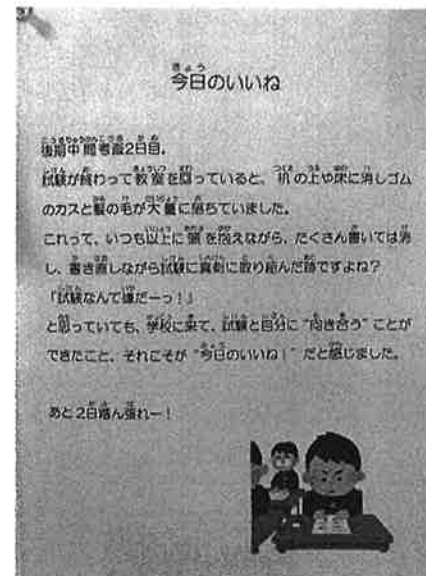 今日のいいね
後期中間考査2日目。
試験が終わって教室を回っていると、机の上や床に消しゴム
のカスと髪の毛が大量に落ちていました。
これって、いつも以上に頭を抱えながら、たくさん書いては消
し、書き直しながら試験に真剣に取り組んだ跡ですよね？
「試験なんて嫌だーっ！」
と思っていても、学校に来て、試験と自分に“向き合う”ことが
できたこと、それこそが“今日のいいね！”だと感じました。
あと2日踏ん張れー！